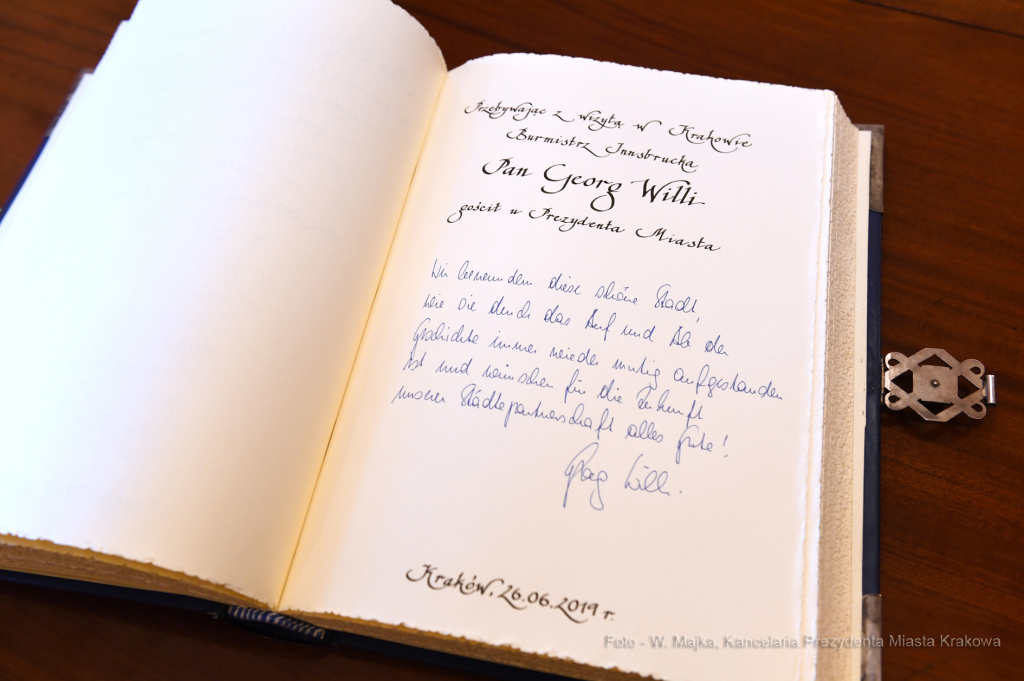 Przebywając z wizytą w Krakowie
Burmistrz Innsbrucka
Pan Georg Willi
gościł u Prezydenta Miasta
Wir bewundern diese schöne Stadt,
wie sie durch das Auf und Ab der
Geschichte immer wieder mutig aufgestanden
ist und wünschen für die Zukunft
unserer Städtepartnerschaft alles Gute!
Georg Willi.
Kraków, 26.06.2019 r.
Foto - W. Majka, Kancelaria Prezydenta Miasta Krakowa